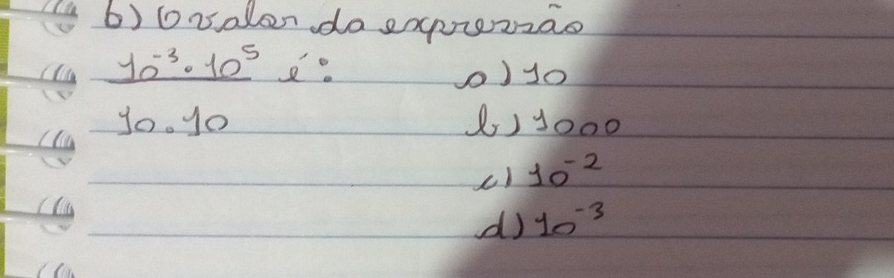 b) O valor da expressão
10⁻³ . 10⁵ é: a) 10
10 . 10 b) 1000
c) 10⁻²
d) 10⁻³